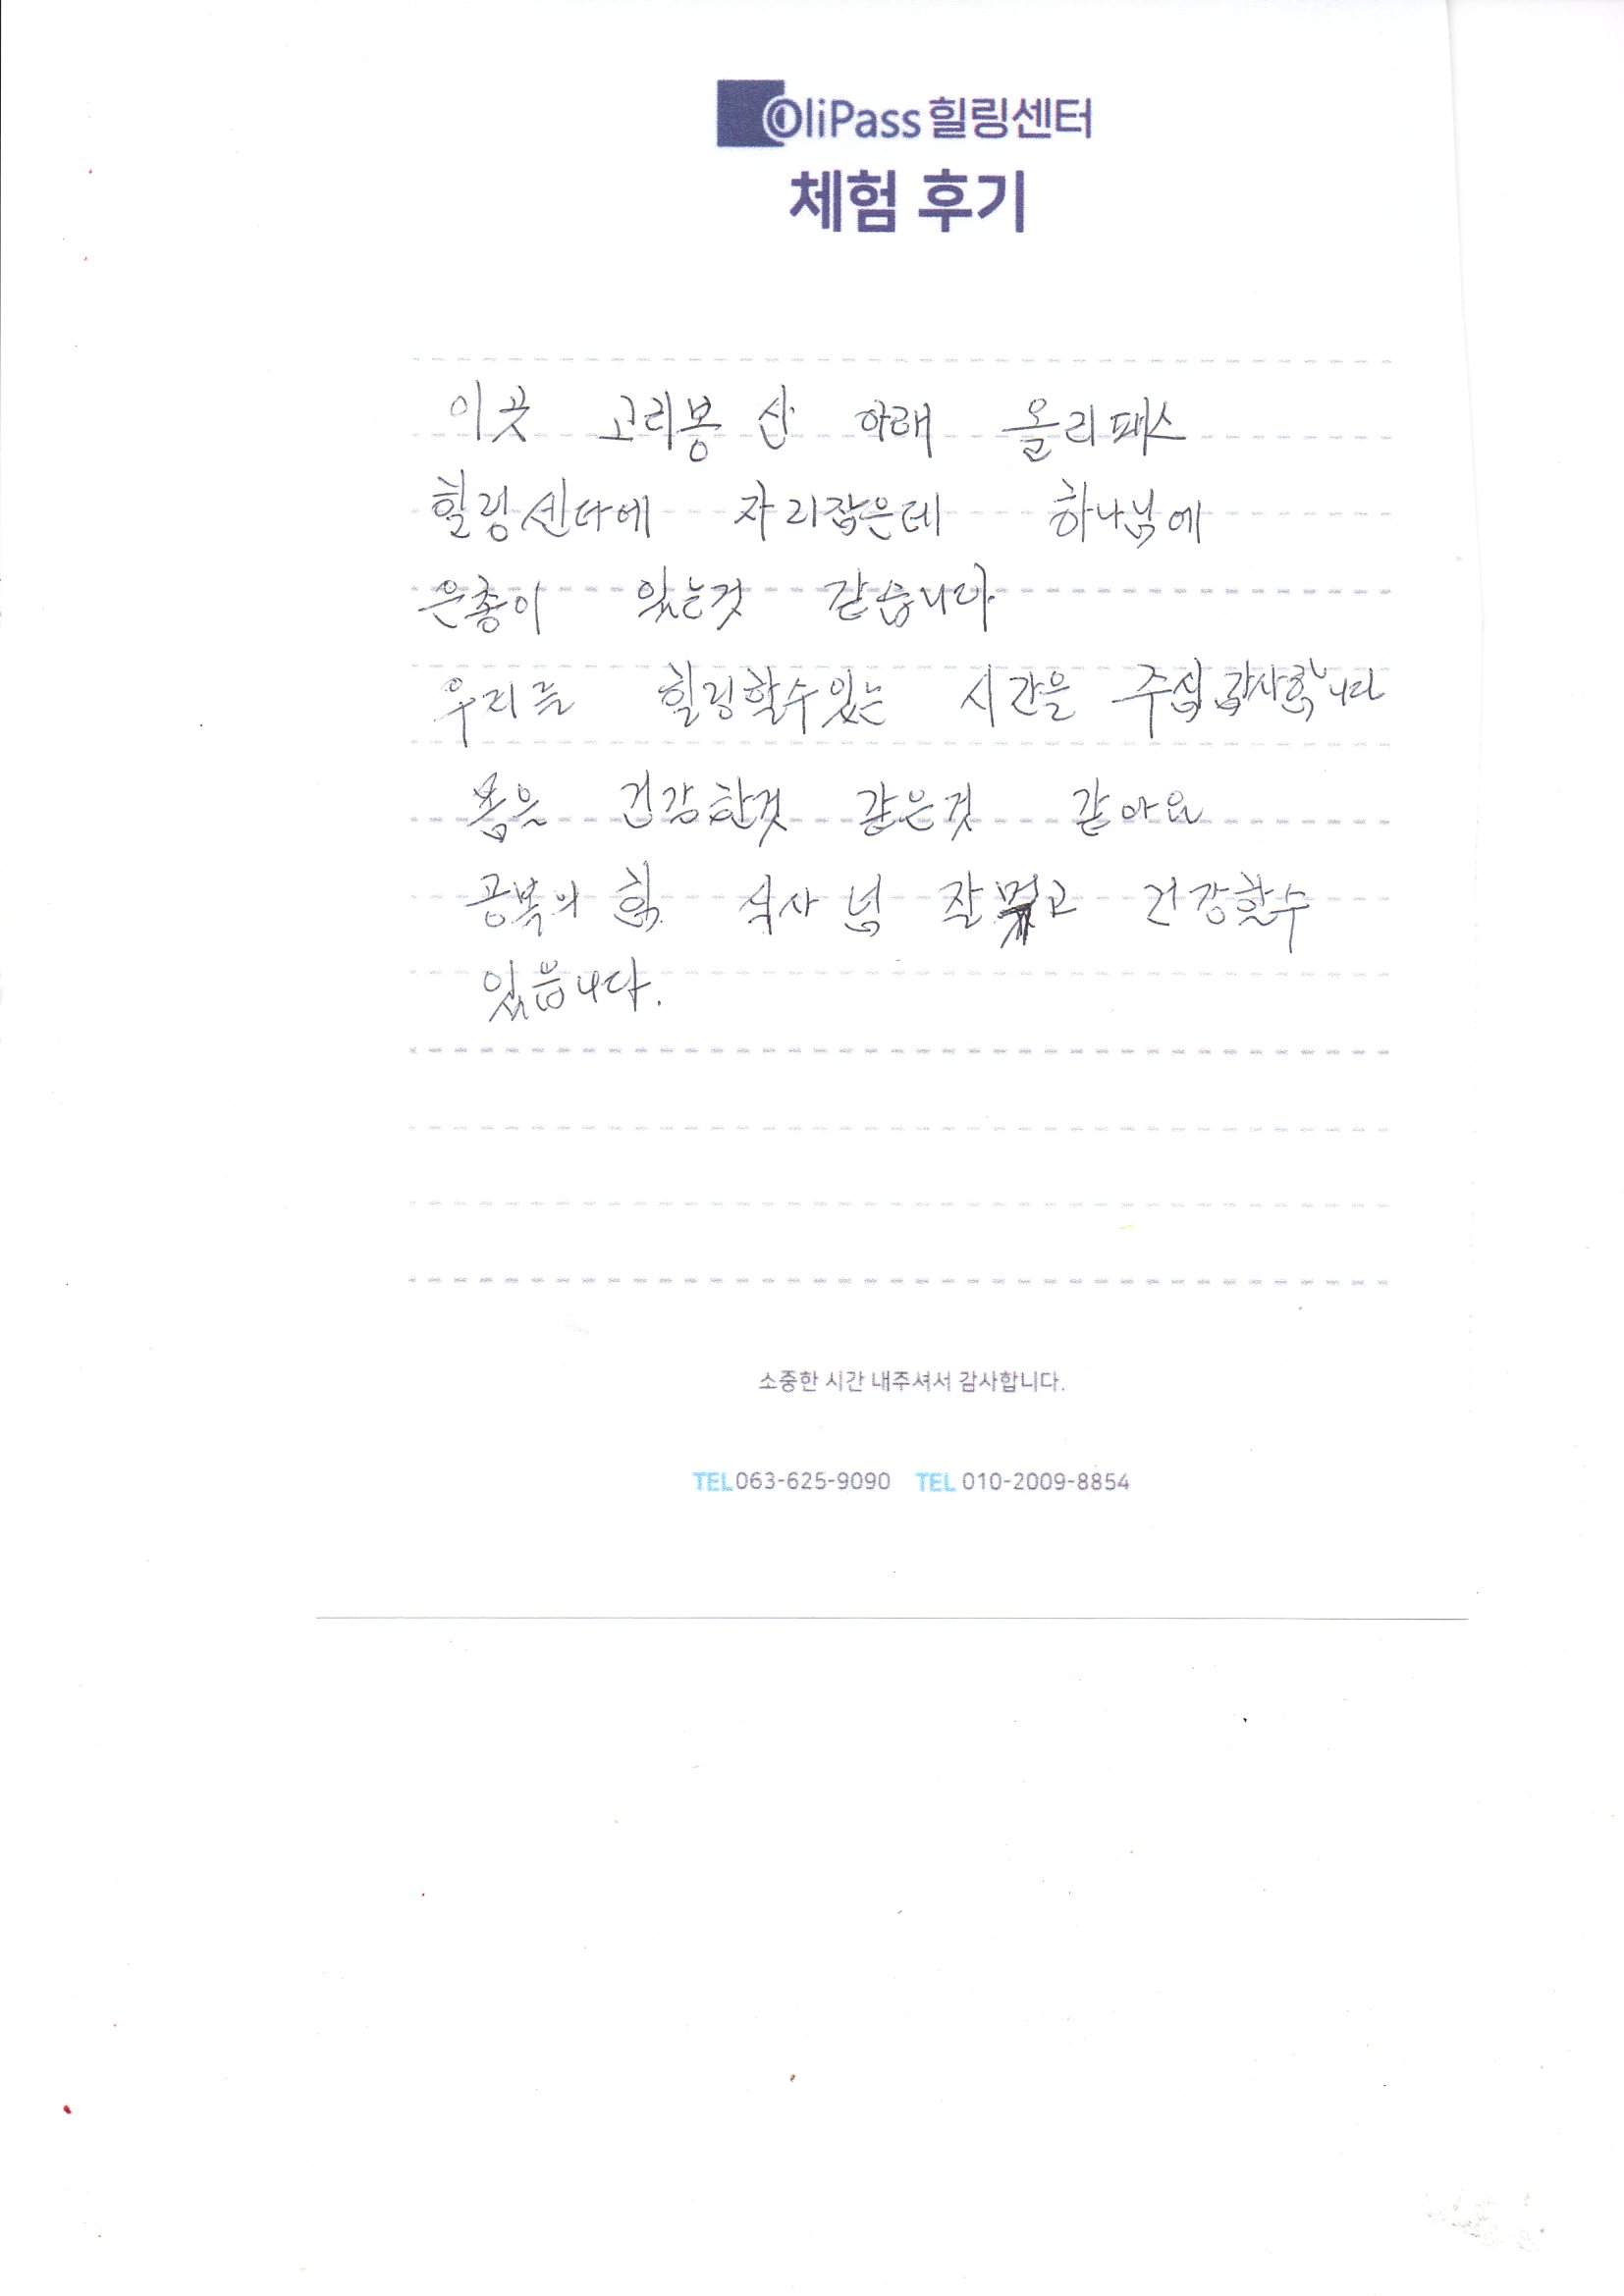 OliPass 힐링센터
체험 후기
이곳 고리봉 산 아래 올리패스
힐링센타에 자리잡은데 하나님에
은총이 있는것 같습니다
우리를 힐링할수있는 시간을 주심 감사합니다
몸은 건강한것 같은것 같아요
공복의 힘 식사 넘 잘 먹고 건강할수
있읍니다.
소중한 시간 내주셔서 감사합니다.
TEL 063-625-9090 TEL 010-2009-8854